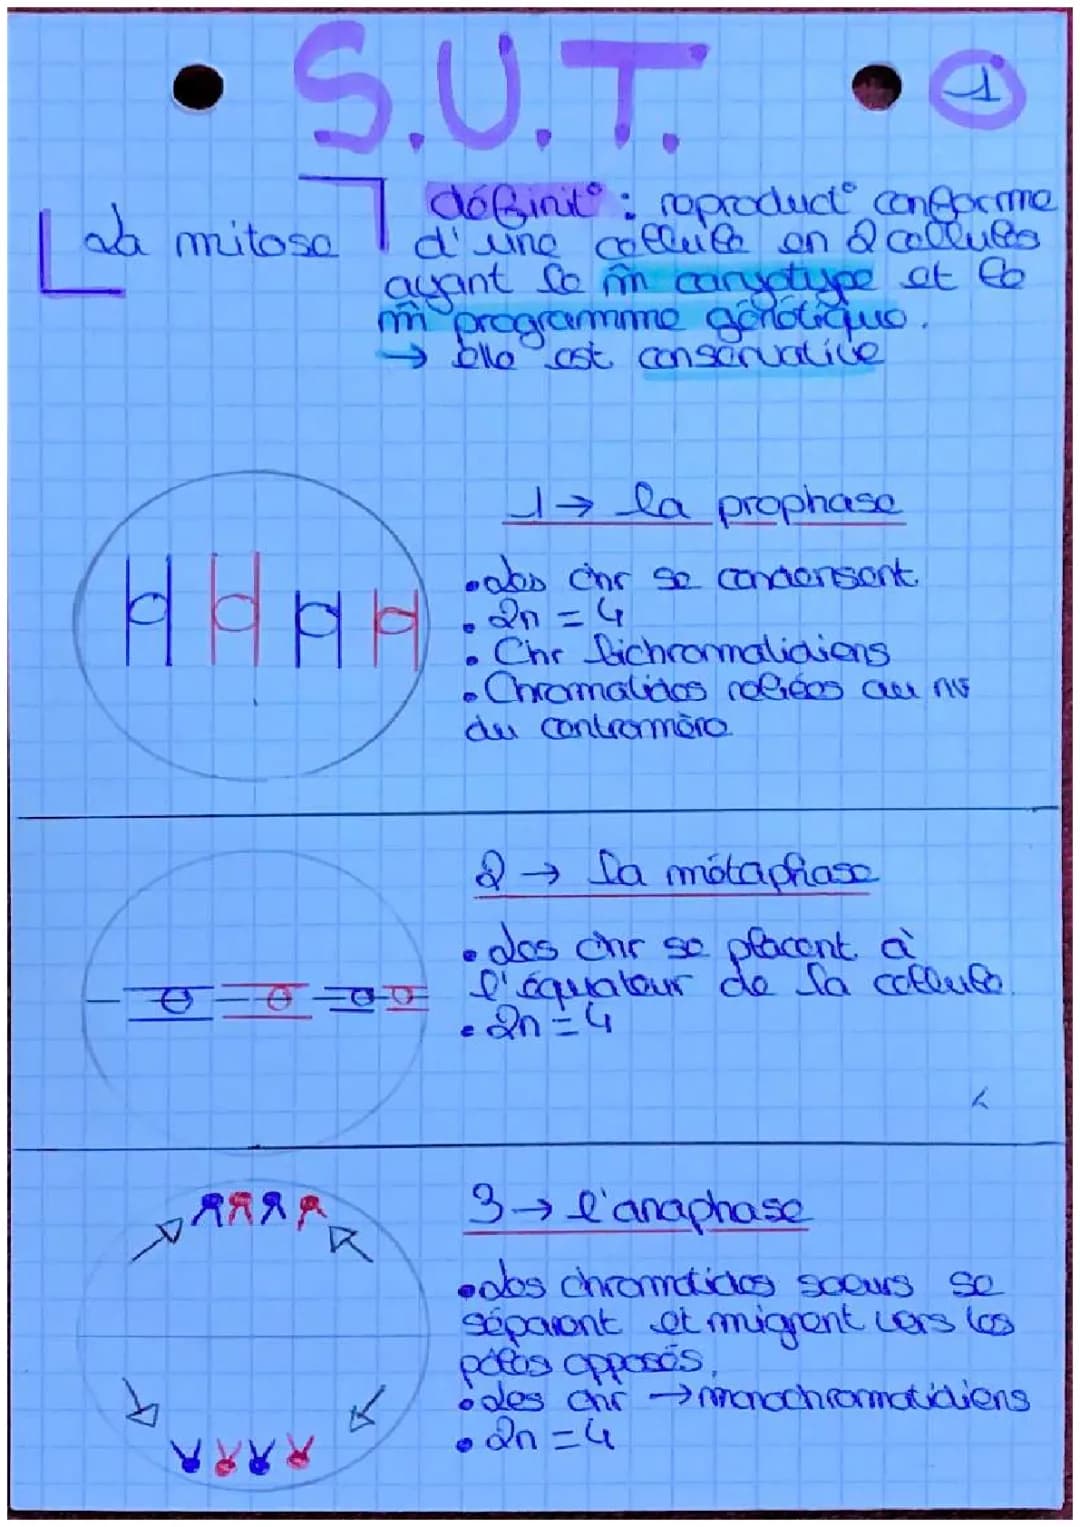 S.V.T.
1
La mitose
définit° : reproduct° conforme
d'une cellule en 2 cellules
ayant le m̂ caryotype et le
m̂ programme génétique.
→ Elle est conservative
1 → la prophase
• Les chr se condensent
• 2n = 4
• Chr bichromatidiens
• Chromatides reliées au nv
du centromère
2 → la métaphase
• Les chr se placent à
l'équateur de la cellule.
• 2n = 4
3 → l'anaphase
• Les chromatides soeurs se
séparent et migrent vers les
pôles opposés.
• Les chr → monochromatidiens
• 2n = 4